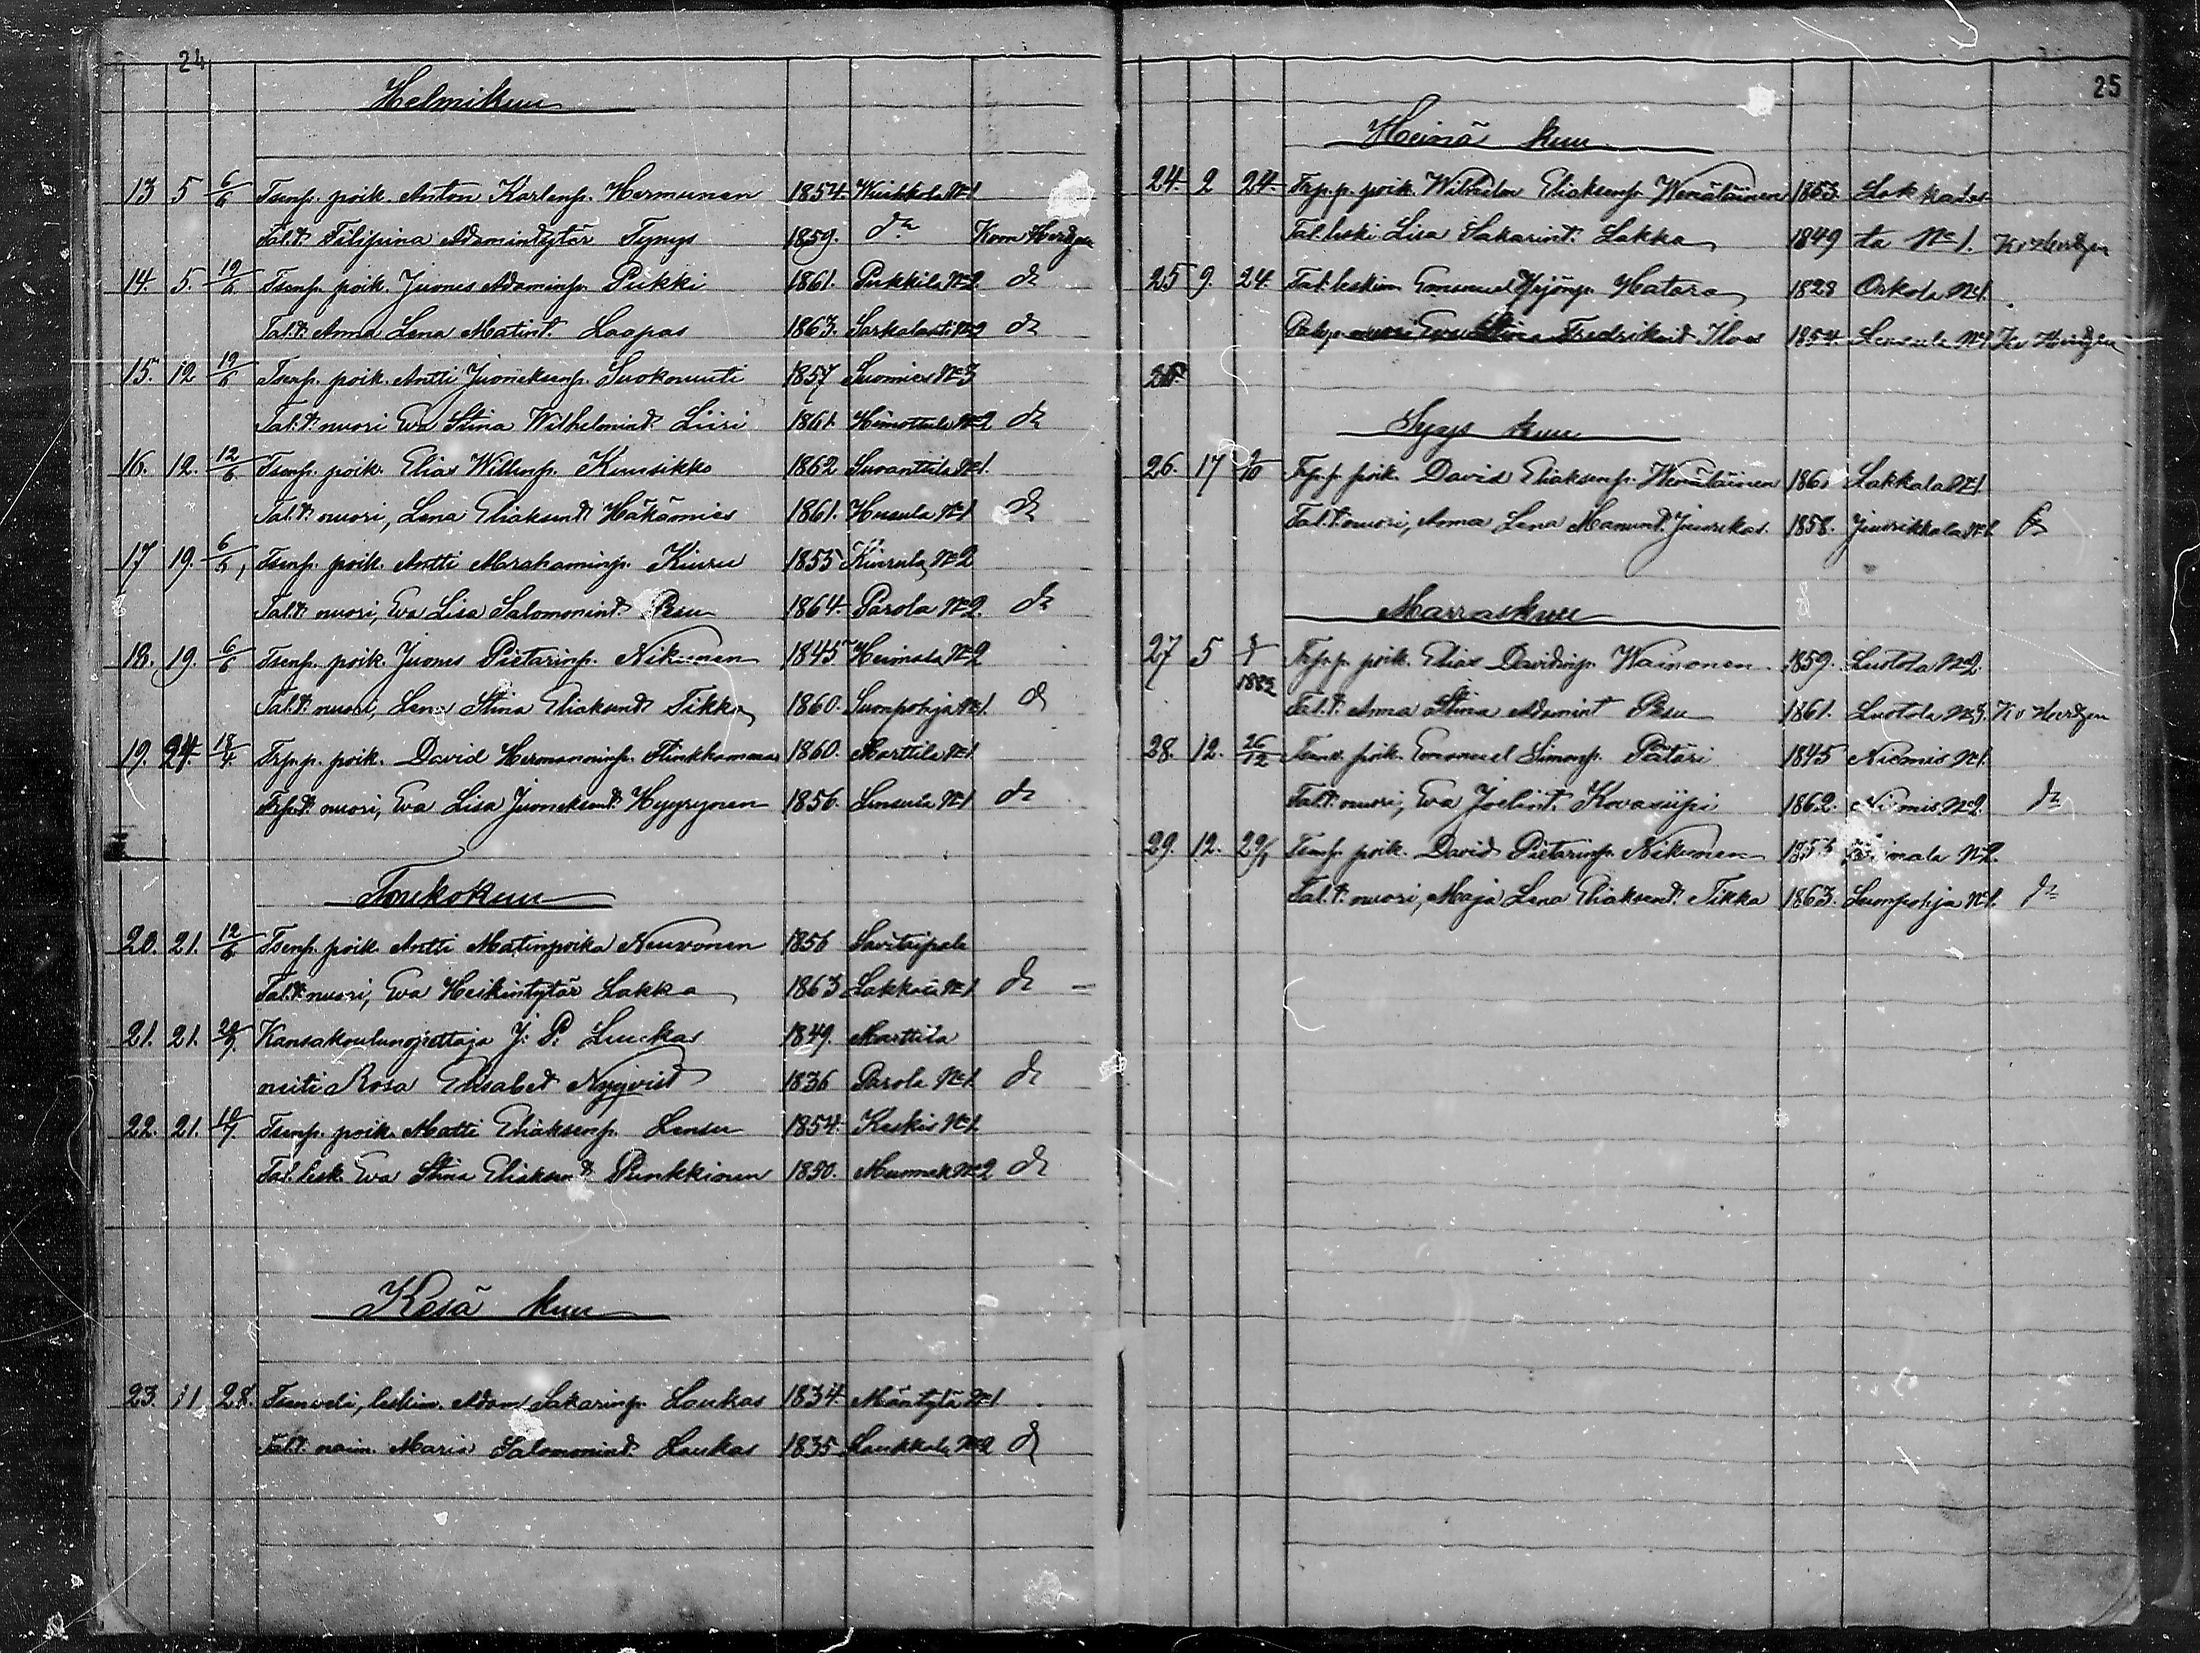 24
Helmikuu
13 5 6/6 Tsenp. poik. Anton Karlenp. Hermunen 1854. Weikkola No 1
Tal.t. Filipina Adamintytär Tynys 1859. do Koon Herdgen
14. 5. 19/6 Tsenp. poik. Juones Adaminp. Pukki 1861. Pukkila No 2 do
Tal.t. Anna Lena Matint. Laapas 1863. Sarkalasti No 2 do
15. 12 19/6 Tsenp. poik. Antti Juoneksenp. Suokonuuti 1857 Suomies No 3
Tal.t. nuori Eva Stina Wilhelmint. Liiri 1861. Himottula No 2 do
16. 12. 12/6 Tsenp. poik. Elias Willenp. Kuusikko 1862 Suvanttila No 1.
Tal.t. nuori, Lena Eliaksent. Häkämies 1861. Husula No 1 do
17 19. 6/6, Tsenp. poik. Antti Abrahaminp. Kiuru 1855 Kiurula No 2
Tal.t. nuori, Eva Lisa Salomonint. Pesu 1864. Parola No 2. do
18. 19. 6/6 Tsenp. poik. Juones Pietarinp. Nikunen 1845 Heimala No 2
Tal.t. nuori, Lena Stina Eliaksent. Tikka 1860. Suonpohja No 1. do
19. 24. 18/4. Trp.p. poik. David Hermanninp. Flinkkamman 1860. Marttila No 1
Trp.t. nuori, Eva Lisa Juoneksent. Hyyrynen 1856. Lensula No 1 do
Toukokuu
20. 21. 12/6 Tsenp. poik. Antti Matinpoika Neuvonen 1856 Savitaipale
Tal.t. nuori, Eva Heikintytär Lakka 1863 Lakkala No 1 do
21. 21. Kansakoulunopettaja J. P. Luukas 1849. Marttila
neiti Rosa Elisabet Nyqvist 1836 Parola No 1. do
22. 21. 10/7. Tsenp. poik. Matti Eliaksenp. Lensu 1854. Keskis No 1.
Tal. lesk. Eva Stina Eliaksent. Punkkinen 1850. Mummek No 2 do
Kesä kuu
23. 11 28. Tsenveli, leskim. Adam Sakarinp. Laukas 1834. Mäntylä No 1
Tal.t. naim. Maria Salomonint. Laukas 1835 Laukkala No 2 do
25
Heinä kuu
24. 2 24. Trp.p. poik. Wilhelm Eliaksenp. Wenäläinen 1853. Lakkales
Tal. leski Lisa Sakarint. Lakka 1849 ta No 1. Kv Herdgen
25 9. 24. Tal. leskim Emanuel Yrjönp. Hatara 1828 Orkola No 1.
nuori Eva Stina Fredrikint. Ilves 1854. Lensula No 1 Kv Herdgen
Syys kuu
26. 17 Trp.p. poik. David Eliaksenp. Wenäläinen 1861 Lakkala No 1
Tal.t. nuori, Anna Lena Manunt. Juurikas. 1858. Juurikkala No 1. do
Marraskuu
27 5 1882 Trp.p. poik. Elias Davidinp. Wainonen 1859. Luotola No 2.
Tal.t. Anna Stina Adamint. Pesu 1861. Luotola No 3. Kv Herdgen
28. 12. 26/12 poik. Emanuel Simonp. Pätäri 1845 Niemis No 1.
Tal.t. nuori, Eva Joelint. Kovasiipi 1862. Niemis No 2. do
29. 12. 29/1 Tsenp. poik. David Pietarinp. Nikunen 1853 Heimala No 2.
Tal.t. nuori, Maja Lena Eliaksent. Tikka 1863. Suonpohja No 1. do